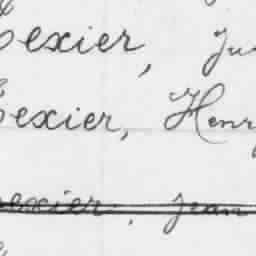 Texier, Ju
Texier, Henr
Texier, Jean